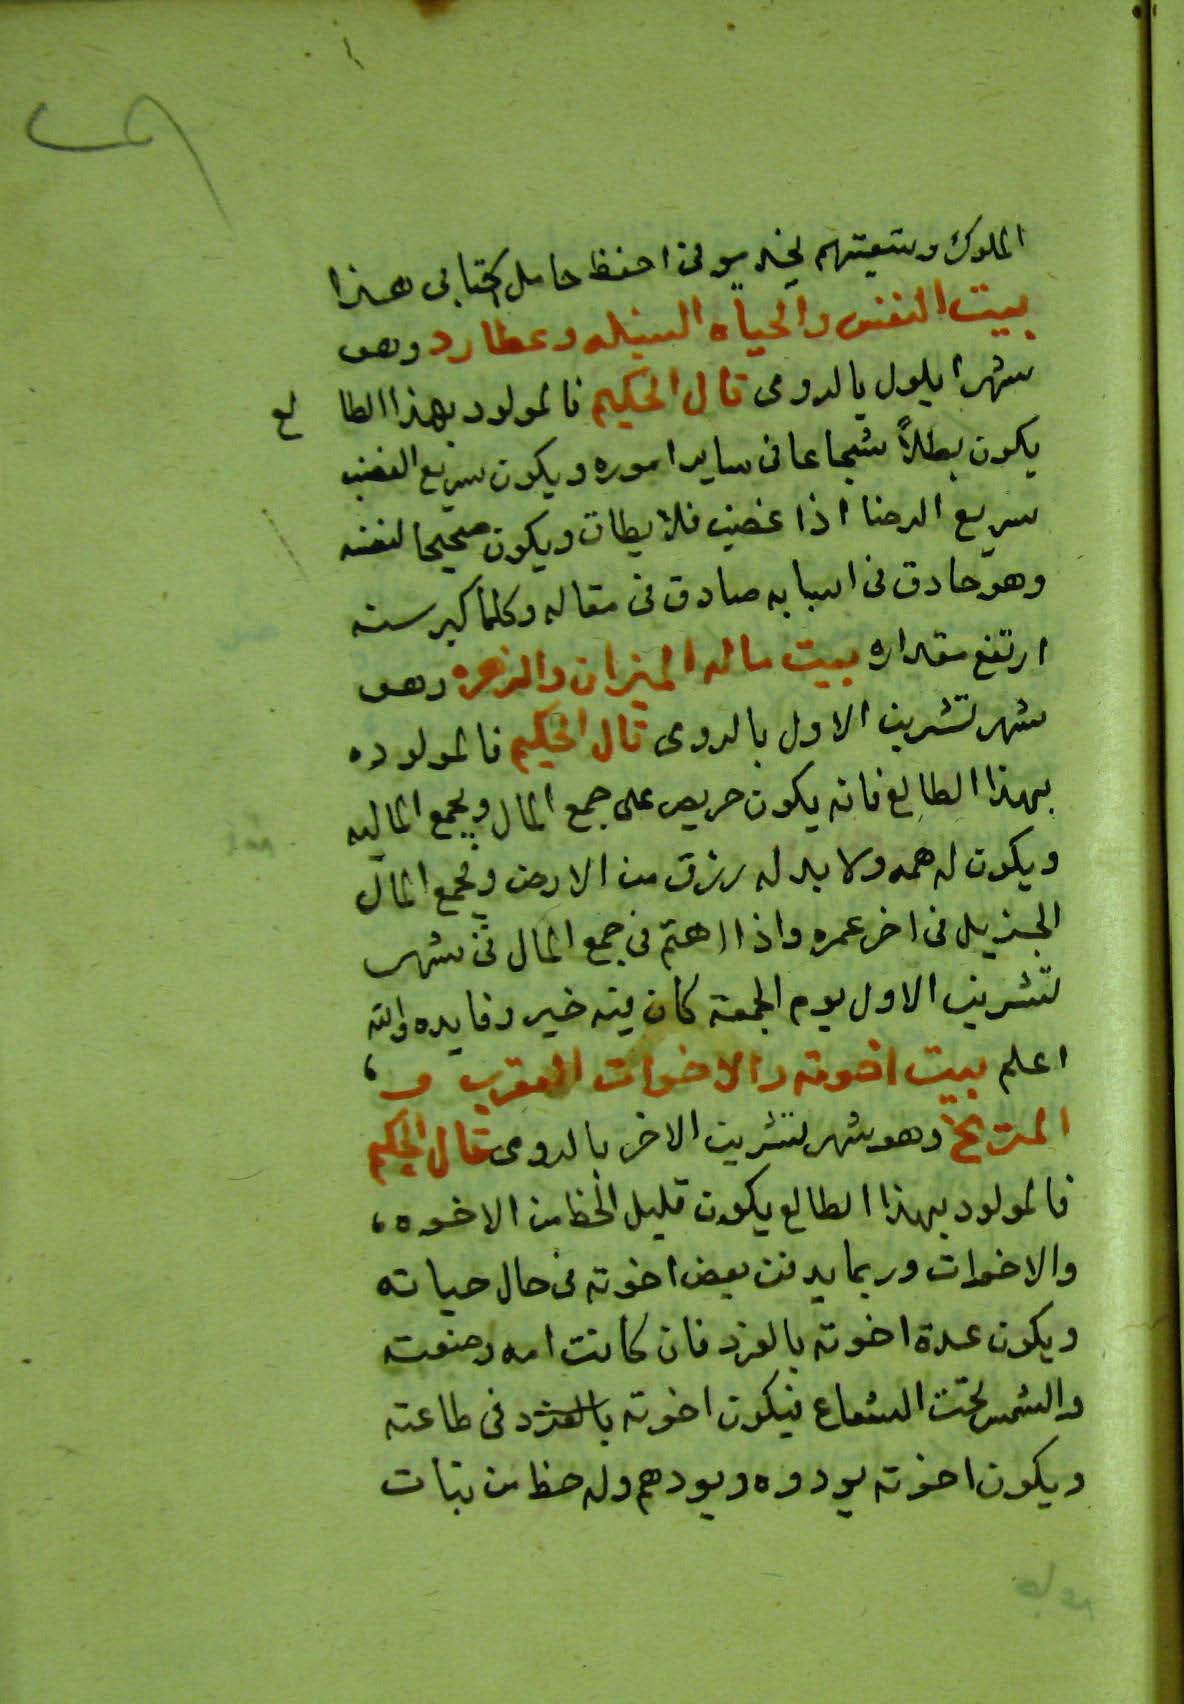 الملوك وسعيتهم احفظ حامل كتابى هذا
بيت النفس والحياه السنبله وعطارد وهو
شهر ايلول بالرومى قال الحكيم فالمولود بهذا الطالع
يكون بطلاً شجاعا فى ساير اموره ويكون سريع الغضب
سريع الرضا اذا غضب فلا يطاق ويكون صحيحا لنفسه
وهو حادق فى اسبابه صادق فى مقاله وكلما كبر سنه
ارتفع مقداره بيت ماله الميزان والزهره وهو
شهر تشرين الاول بالرومى قال الحكيم فالمولوده
بهذا الطالع فانه يكون حريص على جمع المال ويجمع الماليه
ويكون له همه ولا بد له رزق من الارض ويجمع المال
الجزيل فى اخر عمره واذا اهتم فى جمع المال فى شهر
تشرين الاول يوم الجمعة كان فيه خير وفايده والله
اعلم بيت اخوته والاخوات العقرب و
المريخ وهو شهر تشرين الاخر بالرومى قال الحكيم
فالمولود بهذا الطالع يكون قليل الحظ من الاخوه
والاخوات وربما يدفن بعض اخوته فى حال حياته
ويكون عدة اخوته بالفرد فان كانت امه وضعته
والشمس تحت الشعاع فيكون اخوته بالفرد فى طاعته
ويكون اخوته يودوه ويودهم وله حظ من بنات